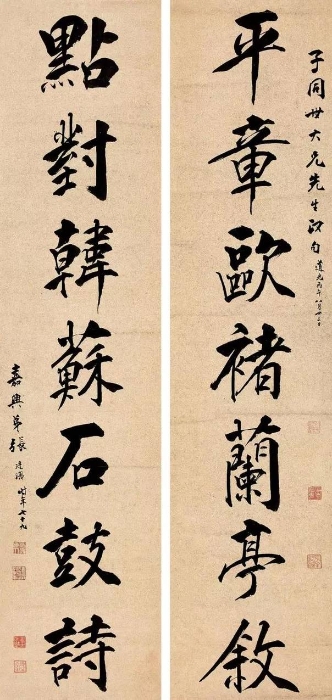 子同世大兄先生政句 道光丙午八月廿三日
平章歐褚蘭亭敘
點對韓蘇石鼓詩
嘉興弟張廷濟 時年七十九